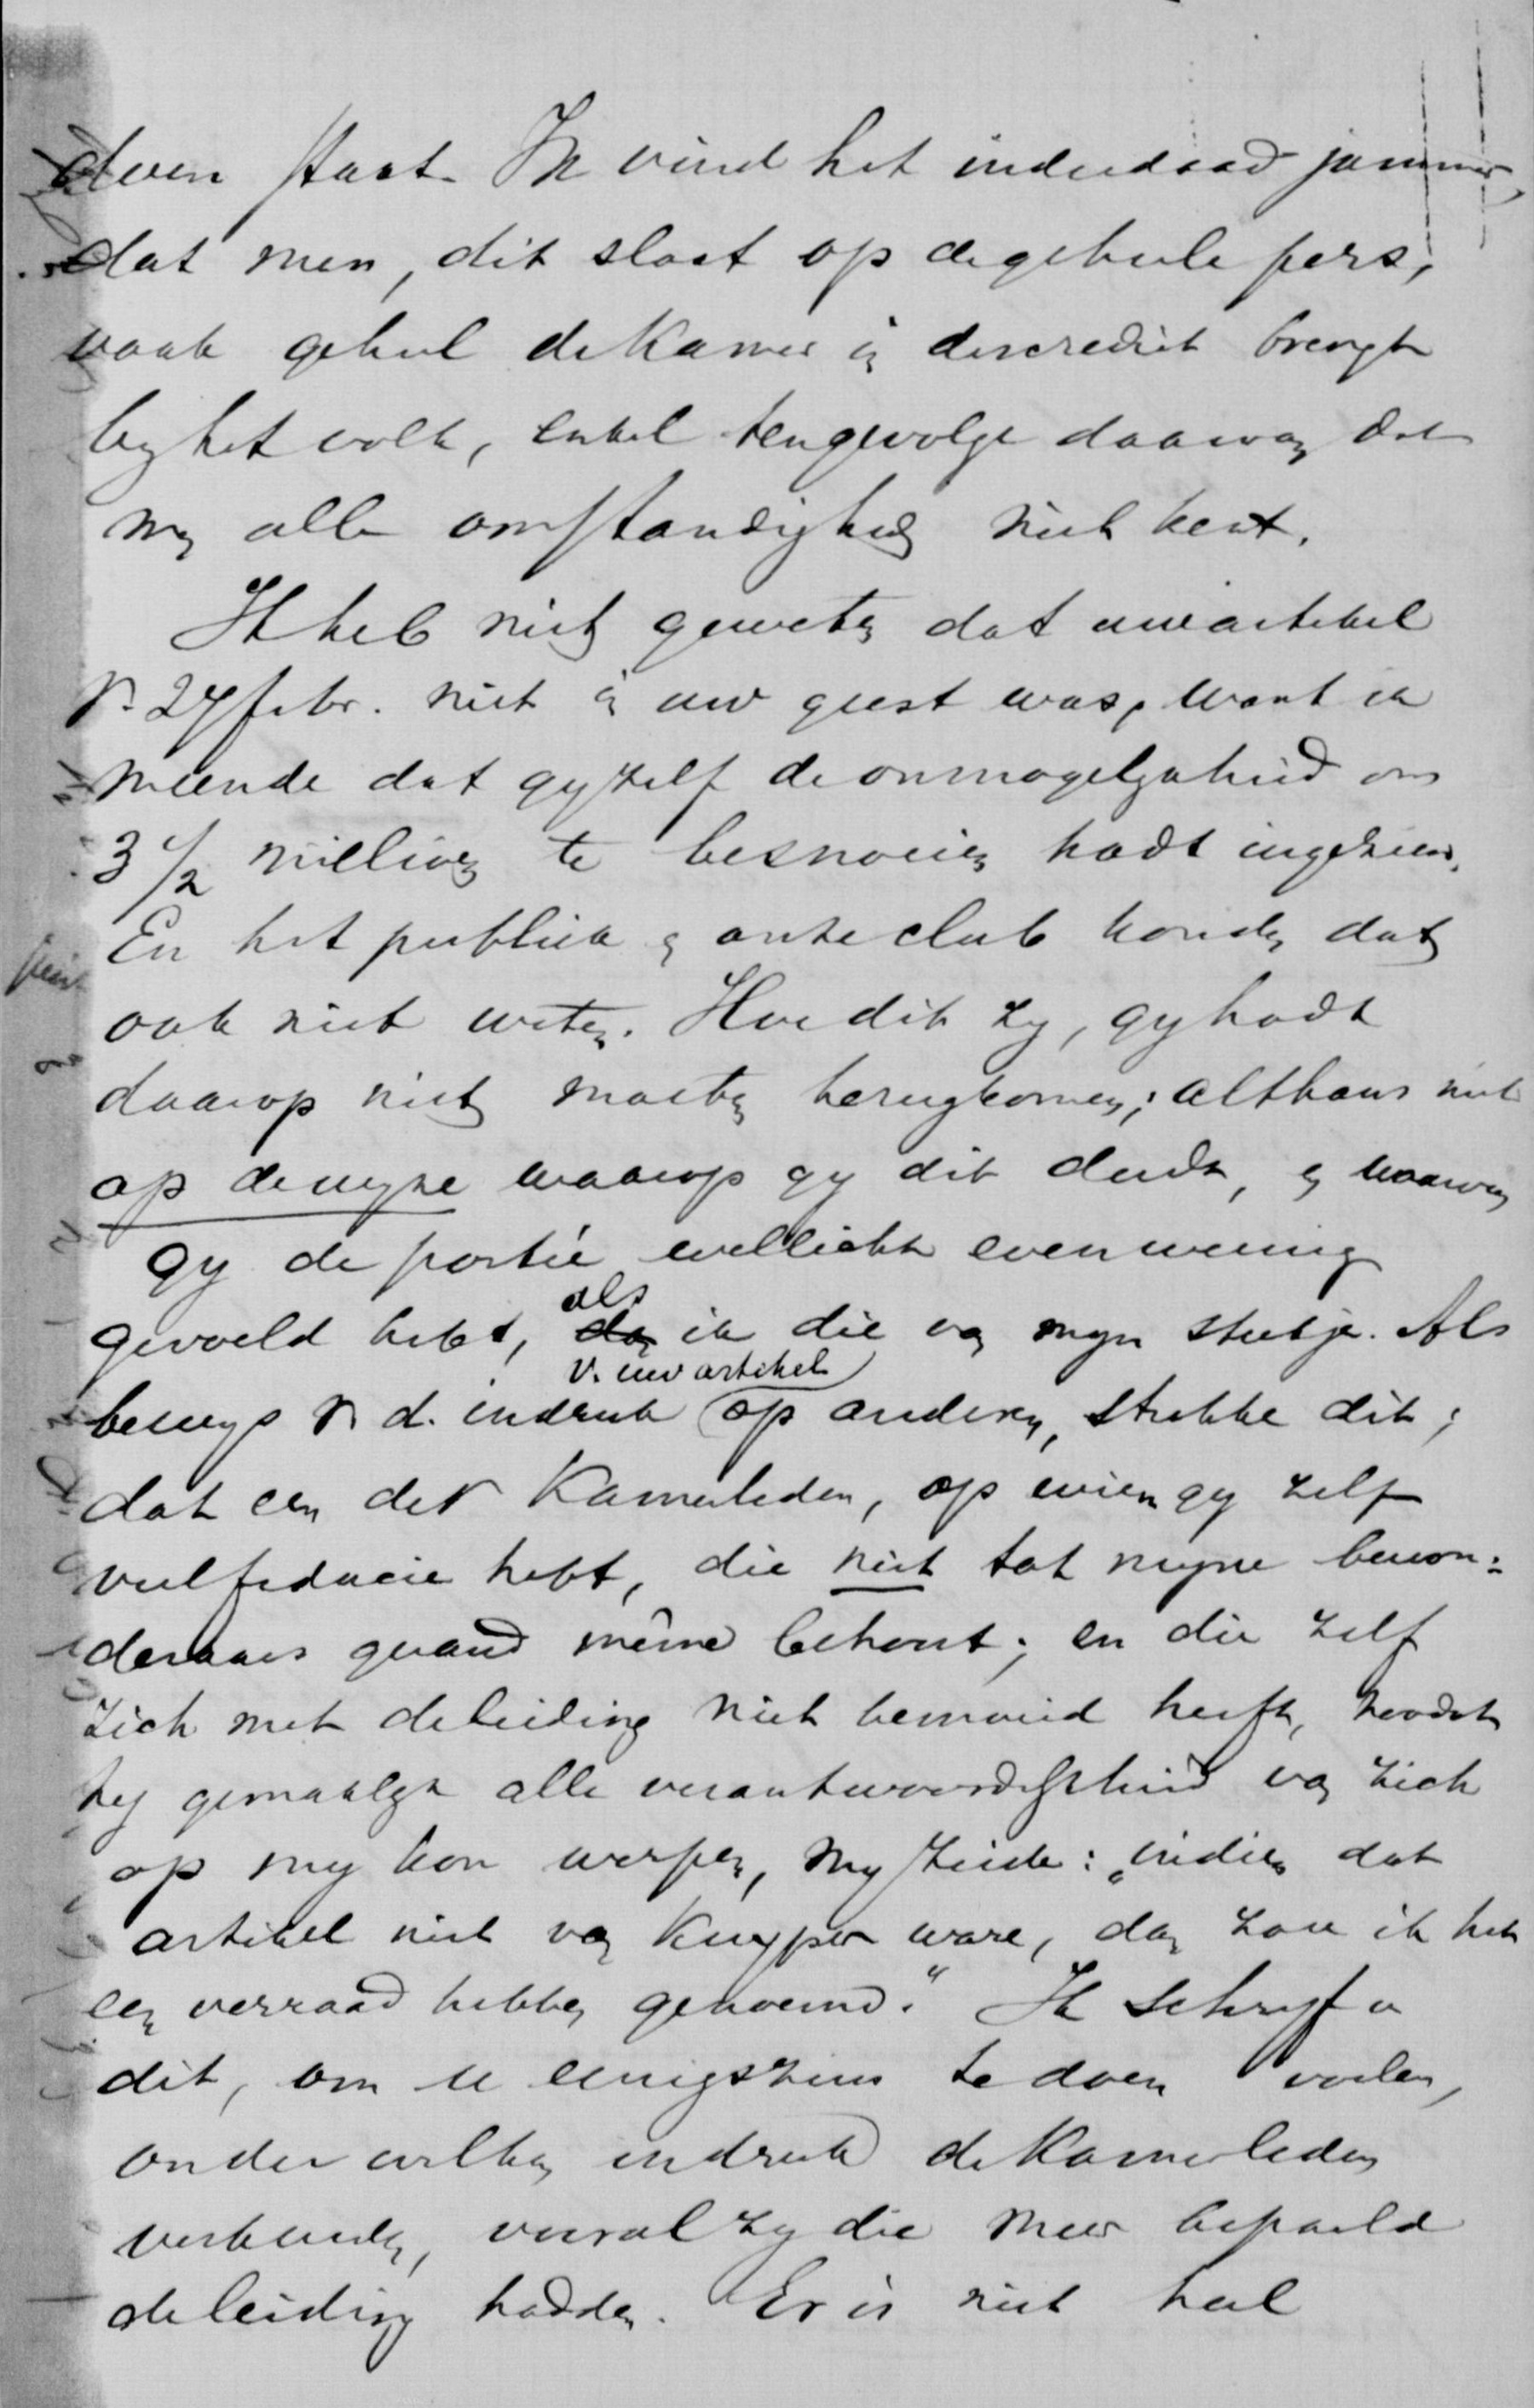 dween staat. Ik vind het inderdaad jammer,
dat men, dit slaat op de geheele pers,
vaak geheel de Kamer in discrediet brengt
by het volk, enkel tengevolge daarvan dat
men alle omstandigheden niet kent.
Ik heb niet geweten dat uw artikel
v. 24 febr. niet in uw geest was, want ik
meende dat gy zelf de onmogelykheid om
3 1/2 millioen te besnoeien hadt ingezien.
En het publiek en onze club konden dat
ook niet weten. Hoe dit zy, gy hadt
daarop niet moeten terugkomen; althans niet
op de wyze waarop gy dit deedt, en waarvan
gy de portée wellicht evenweinig
gevoeld hebt, als ik die van myn stukje. Als
bewys v. d. indruk v. uw artikel op anderen, strekke dit;
dat een der Kamerleden, op wien gy zelf
veel fiducie hebt, die niet tot myne bewon=
deraars quand même behoort; en die zelf
zich met de leiding niet bemoeid heeft, zoodat
hy gemaklyk alle verantwoordelykheid van zich
op my kon werpen, my zeide: „indien dat
artikel niet van Kuyper ware, dan zou ik het
een verraad hebben genoemd." Ik schryf u
dit, om u eenigszins te doen voelen,
onder welken indruk de Kamerleden
verkeerden, vooral zy die meer bepaald
de leiding hadden. Er is niet heel